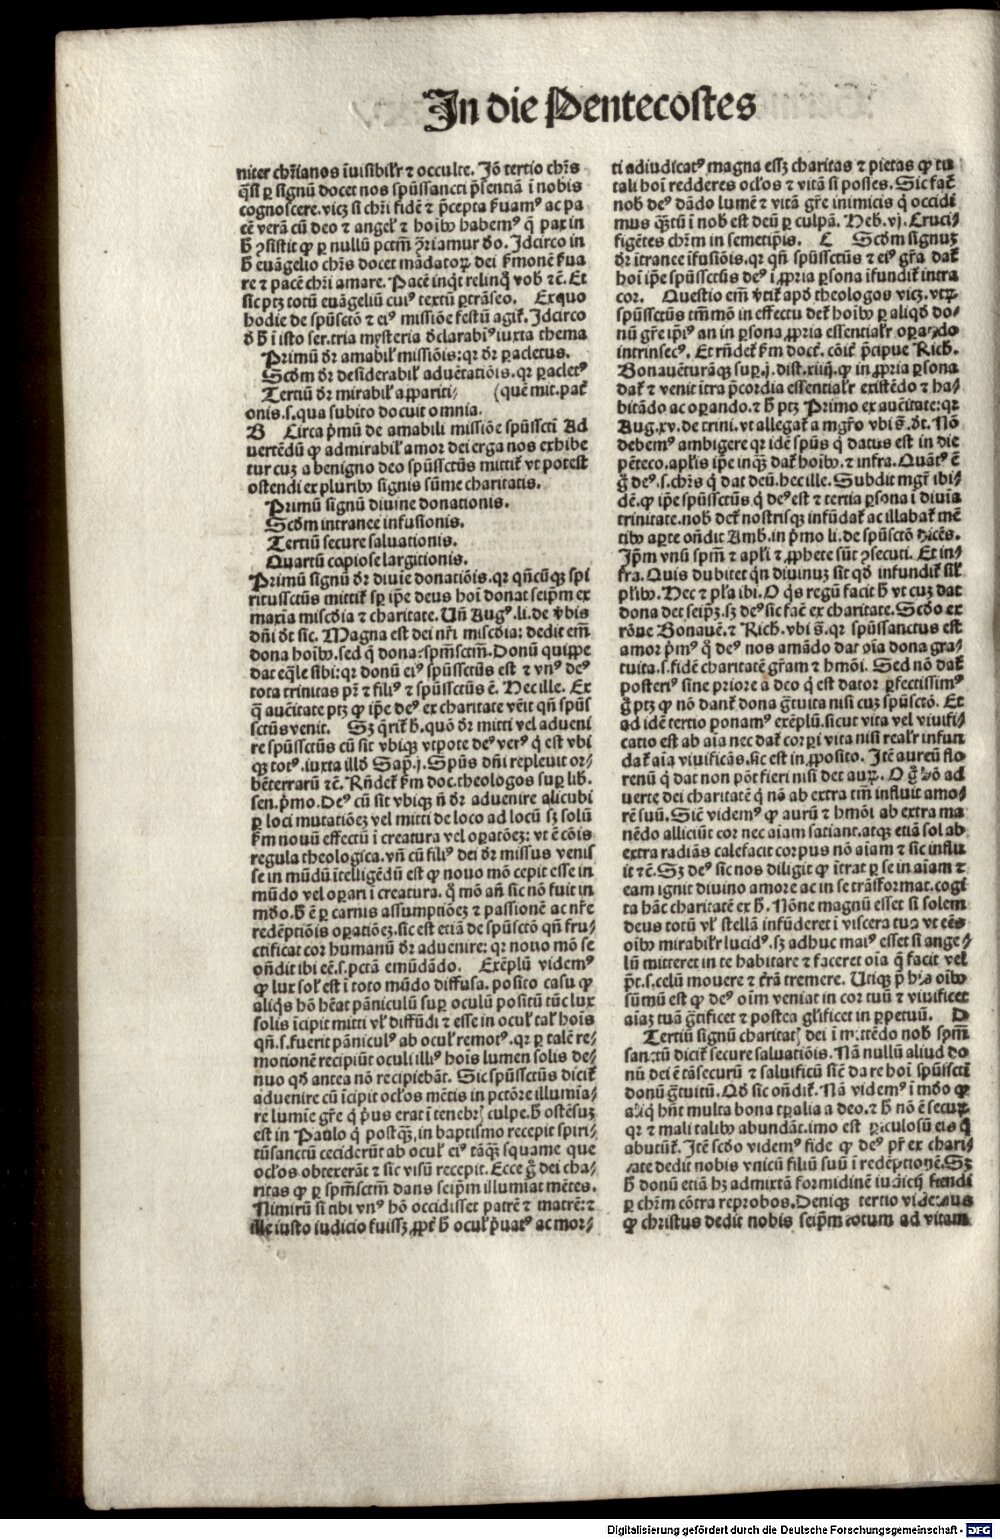 In die Pentecostes
niter chr̃ianos ĩuisibilr̃ ⁊ occulte. Jõ tertio chr̃s
q̃si ꝑ signũ docet nos spũssancti p̃sentiã ĩ nobis
cognoscere. vicꝫ si chr̃i fidẽ ⁊ p̃cepta ẜuamꝰ ac pa
cẽ verã cũ deo ⁊ angel̃ ⁊ hoĩbꝰ habemꝰ q̃ pax in
h̃ ꝯsistit ꝙ ꝑ nullũ pctm̃ ꝯ̃riamur deo. Jdcirco in
h̃ euãgelio chr̃s docet mãdatoꝝ dei ẜmonẽ ẜua
re ⁊ pacẽ chr̃i amare. Pacẽ inq̃t relinq̃ vob̃ ⁊c̃. Et
sic ptꝫ totũ euãgeliũ cuiꝰ textũ ꝑtrãseo. Ex quo
hodie de spũsctõ ⁊ eiꝰ missiõe festũ agit̃. Jdcirco
ĩ isto ser. tria mysteria d̃clarabĩꝰ iuxta thema
Primũ dr̃ amabil̃ missiõis: qꝛ dr̃ ꝑacletus.
Scd̃m dr̃ desiderabil̃ aduẽtatiõis. qꝛ ꝑacletꝰ
Tertiũ dr̃ mirabil̃ appariti⸗ (quẽ mit. pat̃
onis. s. qua subito docuit omnia.
B Circa p̃mũ de amabili missiõe spũsscti Ad
vertẽdũ ꝙ admirabil̃ amor dei erga nos exhibe
tur cuꝫ a benigno deo spũssctũs mittit̃ vt potest
ostendi ex pluribꝰ signis sũme charitatis.
Primũ signũ diuine donationis.
Scd̃m intranee infusionis.
Tertiũ secure saluationis.
Quartũ copiose largitionis.
Primũ signũ dr̃ diuie donatiõis. qꝛ qñcũqꝫ spi
ritussctũs mittit̃ sp̃ ip̃e deus hoĩ donat seip̃m ex
maxĩa miscd̃ia ⁊ charitate. Vñ Augꝰ. li. de v̉bis
dñi dt̃ sic. Magna est dei nr̃i miscd̃ia: dedit em̃
dona hoĩbꝰ. sed q̃ dona: spm̃sctm̃. Donũ quippe
dat eq̃le sibi: qꝛ donũ eiꝰ spũssctũs est ⁊ vnꝰ deꝰ
tota trinitas pr̃ ⁊ filiꝰ ⁊ spũssctũs ẽ. Hec ille. Ex
q̃ auc̃itate ptꝫ ꝙ ip̃e deꝰ ex charitate vẽit qñ spũs
sctũs venit. Sꝫ q̃rit̃ h̃. quõ dr̃ mitti vel adueni
re spũssctũs cũ sit vbiqꝫ vtpote deꝰ verꝰ q̃ est vbi
qꝫ totꝰ. iuxta illd̃ Sap̃. j. Spũs dñi repleuit or⸗
bẽ terrarũ ⁊c̃. Rñdet̃ ẜm doc. theologos suꝑ lib̃.
sen. p̃mo. Deꝰ cũ sit vbiqꝫ ñ dr̃ aduenire alicubi
ꝑ loci mutatiõeꝫ vel mitti de loco ad locũ sꝫ solũ
ẜm nouũ effectũ ĩ creatura vel oꝑatõeꝫ: vt ẽ cõis
regula theologica. vñ cũ filiꝰ dei dr̃ missus venis
se in mũdũ ĩtelligẽdũ est ꝙ nouo mõ cepit esse in
mũdo vel oꝑari ĩ creatura. q̃ mõ añ sic nõ fuit in
mdo. h̃ ẽ ꝑ carnis assumptiõeꝫ ⁊ passionẽ ac nr̃e
redẽptiõis oꝑatiõeꝫ. sic est etiã de spũsctõ qñ fru⸗
ctificat cor humanũ dr̃ aduenire: qꝛ nouo mõ se
oñdit ibi eẽ. s. pctã emũdãdo. Exẽplũ videmꝰ
ꝙ lux sol̃ est ĩ toto mũdo diffusa. posito casu ꝙ
aliqs hõ hẽat pãniculũ suꝑ oculũ positũ tũc lux
solis ĩcipit mitti vl̃ diffũdi ⁊ esse in ocul̃ tal̃ hoĩs
qñ. s. fuerit pãniculꝰ ab ocul̃ remotꝰ. qꝛ ꝑ talẽ re⸗
motionẽ recipiũt oculi illiꝰ hoĩs lumen solis de⸗
nuo qd̃ antea nõ recipiebãt. Sic spũssctũs dicit̃
aduenire cũ ĩcipit ocl̃os mẽtis in pctõre illumĩa⸗
re lumĩe gr̃e q̃ p̃us erat ĩ tenebꝝ culpe. h̃ ostẽsuꝫ
est in Paulo q̃ postq̃ꝫ in baptismo recepit spiri⸗
tũsanctũ ceciderũt ab ocul̃ eiꝰ tãq̃ꝫ squame que
ocl̃os obtexerãt ⁊ sic visũ recepit. Ecce g̃ dei cha⸗
ritas ꝙ ꝑ spm̃sctm̃ dans seip̃m illumĩat mẽtes.
Nimirũ si tibi vnꝰ hõ occidisset patrẽ ⁊ matrẽ: ⁊
ille iusto iudicio fuissꝫ ꝓpt̃ h̃ ocul̃ p̃uatꝰ ac mor⸗
ti adiudicatꝰ magna essꝫ charitas ⁊ pietas ꝙ tu
tali hoĩ redderes ocl̃os ⁊ vitã si posses. Sic fac̃
nob̃ deꝰ dãdo lumẽ ⁊ vitã gr̃e inimicis q̃ occidi
mus q̃ꝫtũ ĩ nob̃ est deũ ꝑ culpã. Heb. vj. Cruci⸗
figẽtes chr̃m in semetip̃is. C Scd̃m signuꝫ
dr̃ ĩtrance ĩfusiõis. qꝛ qñ spũssctũs ⁊ eiꝰ gr̃a dat̃
hoĩ ip̃e spũssctũs deꝰ ĩ ꝓpria ꝑsona ĩfundit̃ intra
cor. Questio em̃ v̉tit̃ apd̃ theologos vicꝫ. vtꝝ
spũssctũs tm̃mõ in effectu det̃ hoĩbꝰ ꝑ aliqd̃ do⸗
nũ gr̃e ip̃iꝰ an in ꝑsona ꝓpria essentialr̃ oꝑando
intrinsecꝰ. Et rñdet̃ ẜm doct̃. cõit̃ p̃cipue Rich.
Bonauẽturãqꝫ suꝑ. j. dist. xiiij. ꝙ in ꝓpria ꝑsona
dat̃ ⁊ venit ĩtra p̃cordia essentialr̃ existẽdo ⁊ ha⸗
bitãdo ac oꝑando. ⁊ h̃ ptꝫ Primo ex auc̃itate: qꝛ
Aug. xv. de trini. vt allegat̃ a mgr̃o vbi s̃. dt̃. Nõ
debemꝰ ambigere qꝛ idẽ spũs q̃ datus est in die
pẽteco. apl̃is ip̃e inqꝫ dat̃ hoĩbꝰ. ⁊ infra. Quãtꝰ ẽ
g̃ deꝰ. s. chr̃s q̃ dat deũ. hec ille. Subdit mgr̃ ibi⸗
dẽ. ꝙ ip̃e spũssctũs q̃ deꝰ est ⁊ tertia ꝑsona ĩ diuĩa
trinitate. nob̃ det̃ nostrisqꝫ infũdat̃ ac illabat̃ mẽ
tibꝰ aꝑte oñdit Amb. in p̃mo li. de spũsctõ dicẽs.
Jp̃m vnũ spm̃ ⁊ apl̃i ⁊ ꝓphete sũt ꝯsecuti. Et in⸗
fra. Quis dubitet q̃n diuinuꝫ sit qd̃ infundit̃ sil̃
pl̃ibꝰ. Hec ⁊ pl̃a ibi. O q̃s regũ facit h̃ vt cuꝫ dat
dona det seip̃ꝫ. sꝫ deꝰ sic fac̃ ex charitate. Scd̃o ex
rõne Bonauẽ. ⁊ Rich. vbi s̃. qꝛ spũssanctus est
amor p̃mꝰ q̃ deꝰ nos amãdo dat oĩa dona gra⸗
tuita. s. fidẽ charitatẽ gr̃am ⁊ hmõi. Sed nõ dat̃
posteriꝰ sine priore a deo q̃ est dator ꝑfectissimꝰ
g̃ ptꝫ ꝙ nõ dant̃ dona g̃tuita nisi cuꝫ spũsctõ. Et
ad idẽ tertio ponamꝰ exẽplũ. sicut vita vel viuifi⸗
catio est ab aĩa nec dat̃ corpori vita nisi realr̃ infun
dat̃ aĩa viuificãs. sic est in ꝓposito. Jtẽ aureũ flo⸗
renũ q̃ dat non põt fieri nisi det auꝝ. O g̃ hõ ad
uerte dei charitatẽ q̃ nõ ab extra tm̃ influit amo⸗
rẽ suũ. Sic̃ videmꝰ ꝙ aurũ ⁊ hmõi ab extra ma
nẽdo alliciũt cor nec aĩam satiant. atqꝫ etiã sol ab
extra radiãs calefacit corpus nõ aĩam ⁊ sic influ
it ⁊c̃. Sꝫ deꝰ sic nos diligit ꝙ ĩtrat ꝑ se in aĩam ⁊
eam ignit diuino amore ac in se trãsformat. cogi
ta hãc charitatẽ ex h̃. Nõne magnũ esset si solem
deus totũ vl̃ stellã infũderet ĩ viscera tua vt eẽs
oĩbꝰ mirabilr̃ lucidꝰ. sꝫ adhuc maiꝰ esset si ange⸗
lũ mitteret in te habitare ⁊ faceret oĩa q̃ facit vel
p̃t. s. celũ mouere ⁊ t̃rã tremere. Utiqꝫ p̃ his oĩbꝰ
sũmũ est ꝙ deꝰ oĩm veniat in cor tuũ ⁊ viuificet
aĩaꝫ tuã g̃tificet ⁊ postea gl̃ificet in ꝑpetuũ. D
Tertiũ signũ charitatꝭ dei ĩ mittẽdo nob̃ spm̃
sanctũ dicit̃ secure saluatiõis. Nã nullũ aliud do
nũ dei ẽ tã securũ ⁊ saluificũ sic̃ dare hoĩ spũsscti
donũ g̃tuitũ. Qd̃ sic oñdit̃. Nã videmꝰ ĩ mdo ꝙ
aliq̃ hñt multa bona tꝑalia a deo. ⁊ h̃ nõ ẽ securꝫ
qꝛ ⁊ mali talibꝰ abundãt. imo est ꝑiculosũ eis q̃
abutũt̃. Jtẽ scd̃o videmꝰ fide ꝙ deꝰ pr̃ ex chari⸗
tate dedit nobis vnicũ filiũ suũ ĩ redẽptionẽ. Sꝫ
h̃ donũ etiã hꝫ admixtã formidinẽ iudicij fiendi
ꝑ chr̃m cõtra reprobos. Deniqꝫ tertio videmus
ꝙ christus dedit nobis seip̃m totum ad vitam
Digitalisierung gefördert durch die Deutsche Forschungsgemeinschaft - DFG